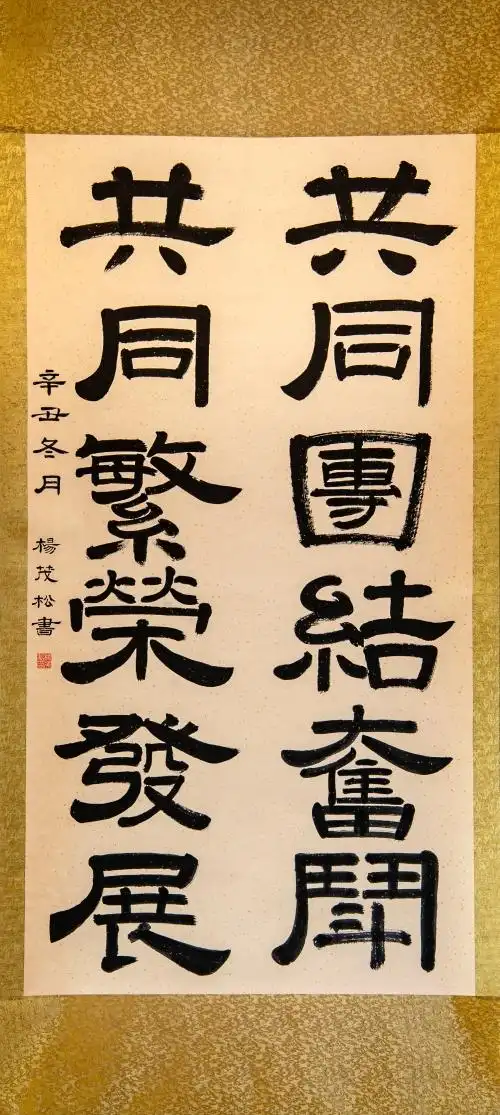 共同團結奮鬥
共同繁榮發展
辛丑冬月 楊茂松書